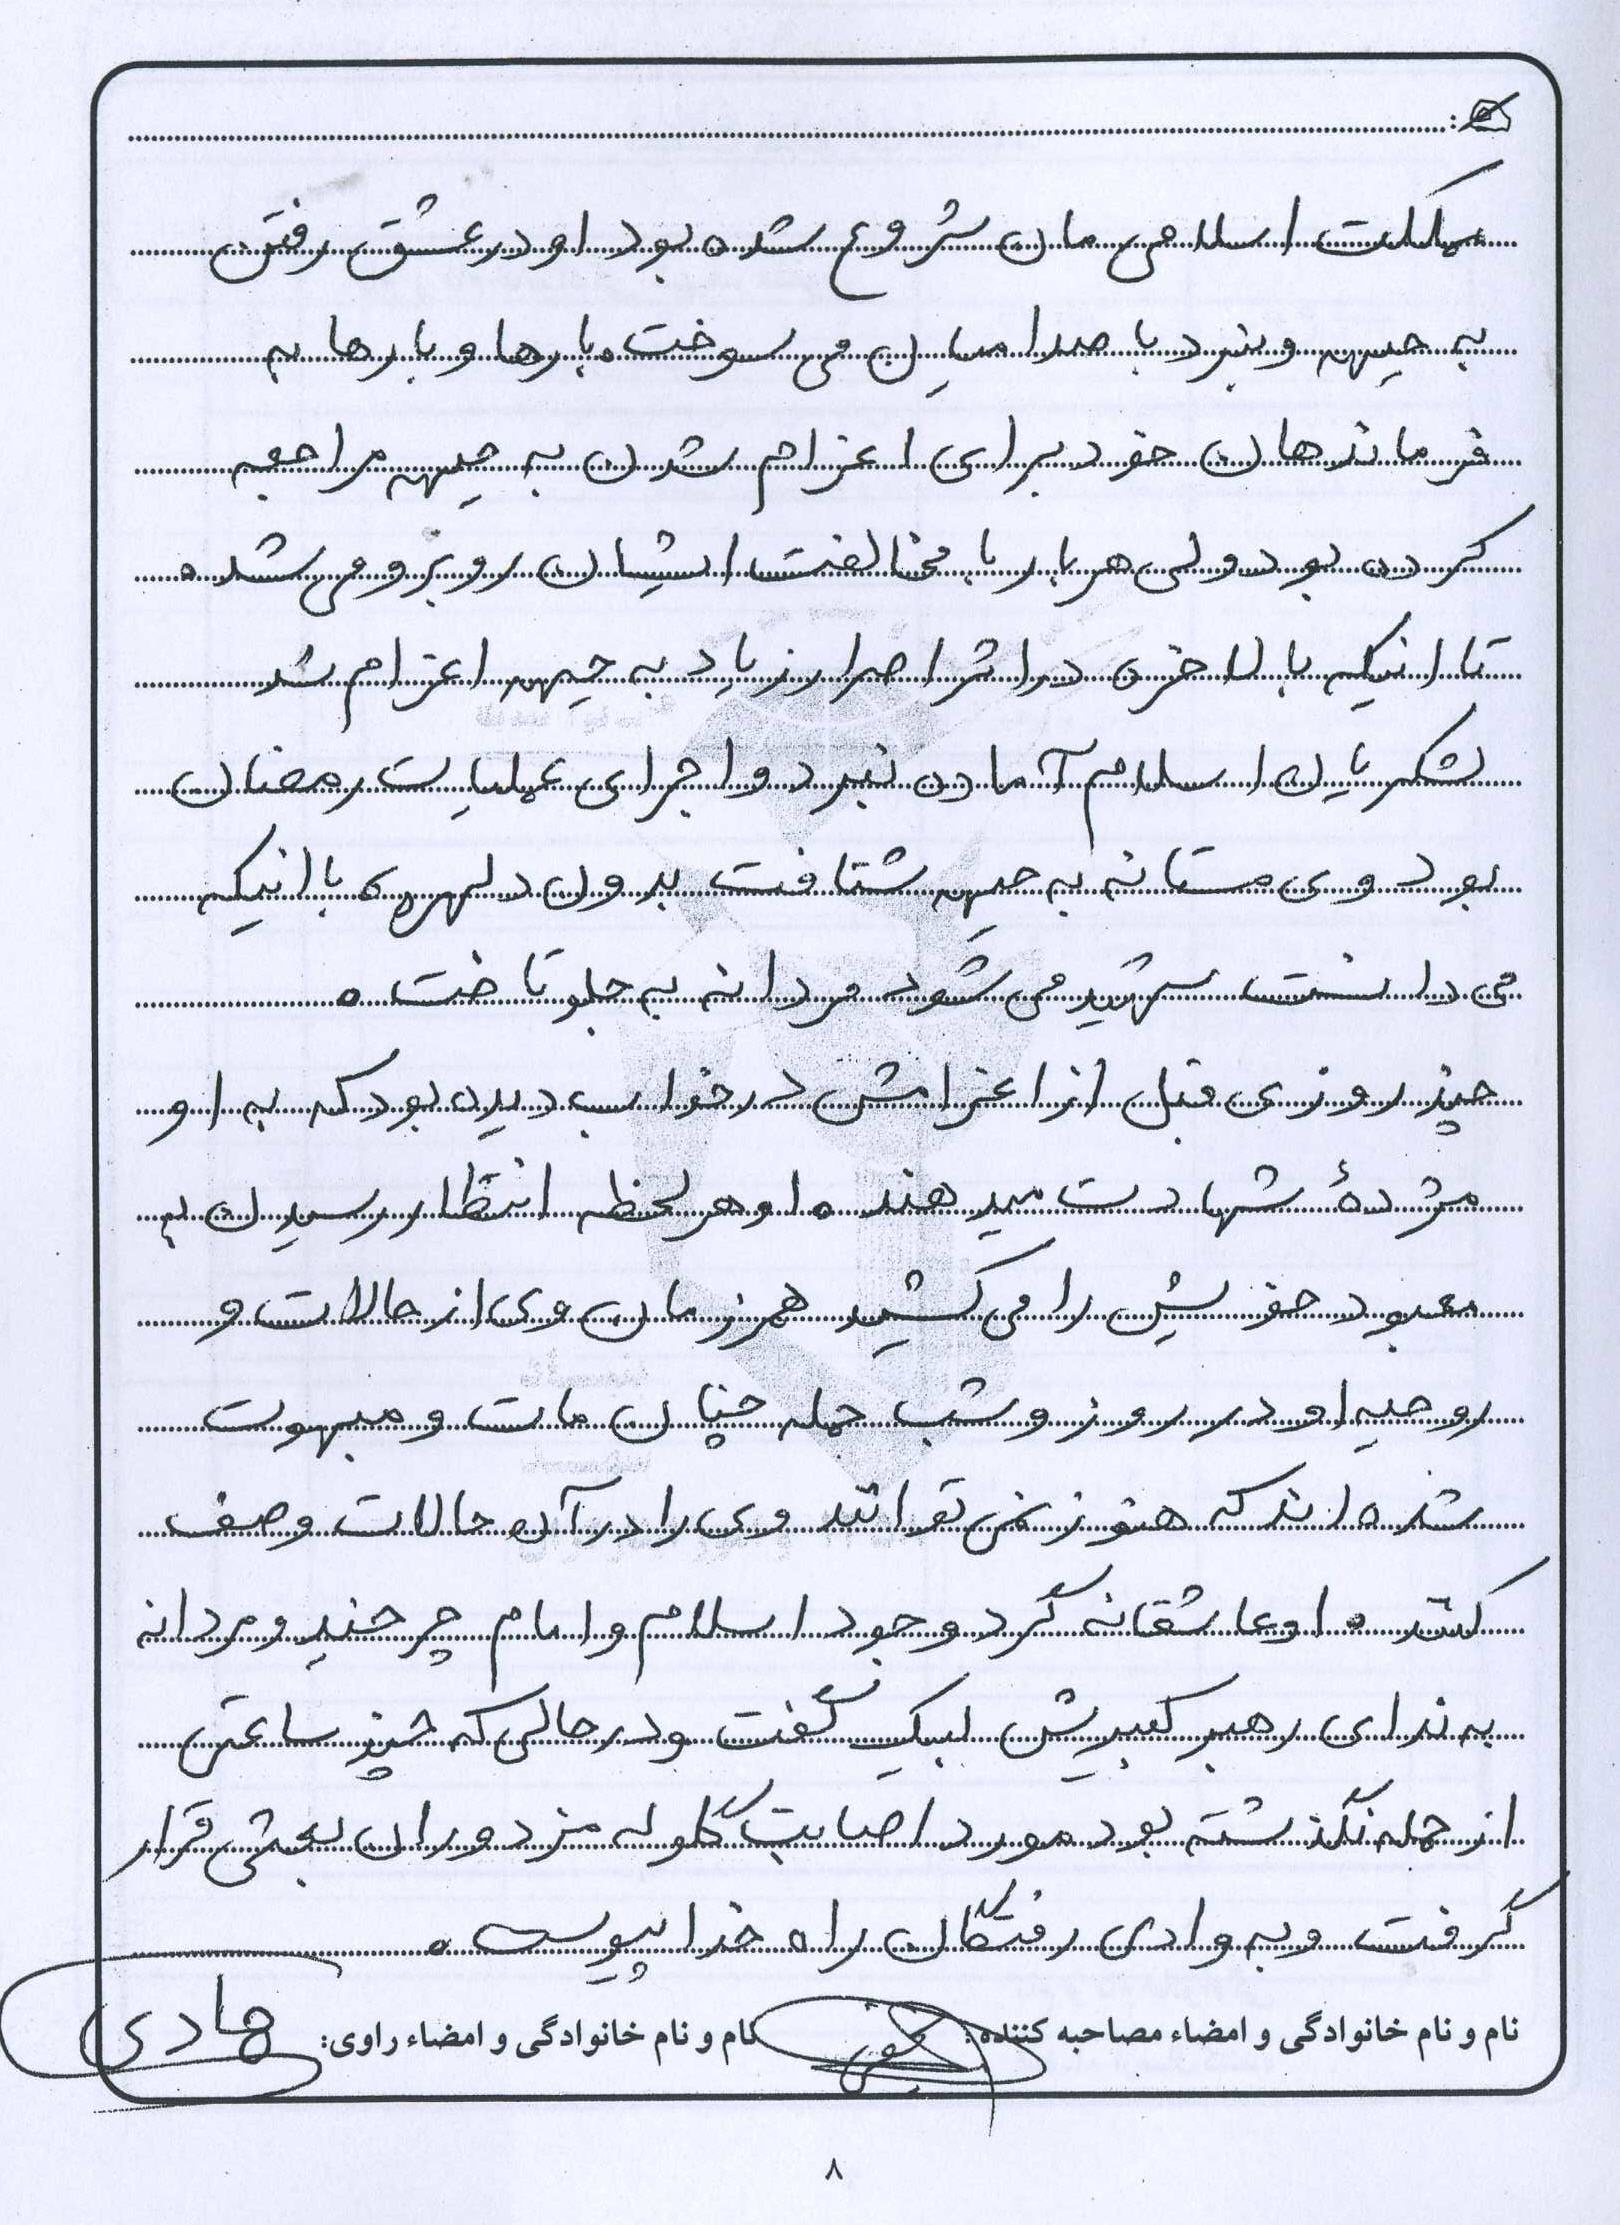 مملکت اسلامی مان شروع شده بود او در عشق رفتن
به جبهه و نبرد با صدامیان می سوخت. بارها و بارها به
فرماندهان خود برای اعزام شدن به جبهه مراجعه
کرده بود ولی هر بار با مخالفت ایشان روبرو می شد.
تا اینکه بالاخره در اثر اصرار زیاد به جبهه اعزام شد
لشکریان اسلام آماده نبرد و اجرای عملیات رمضان
بود وی مستانه به جبهه شتافت بدون دلهره با اینکه
می دانست شهید می شود مردانه به جلو تاخت.
چند روزی قبل از اعزامش در خواب دیده بود که به او
مژدهٔ شهادت میدهند. او هر لحظه انتظار رسیدن به
معبود خویش را می کشید همرزمان وی از حالات و
روحیه او در روز و شب حمله چنان مات و مبهوت
شده اند که هنوز نمی توانند وی را در آن حالات وصف
کنند. او عاشقانه گرد وجود اسلام و امام چرخید و مردانه
به ندای رهبر کبیرش لبیک گفت و در حالی که چند ساعتی
از حمله نگذشته بود مورد اصابت گلوله مزدوران بعثی قرار
گرفت و به وادی رفتگان راه خدا پیوست.
نام و نام خانوادگی و امضاء مصاحبه کننده: نام و نام خانوادگی و امضاء راوی: هادی
۸